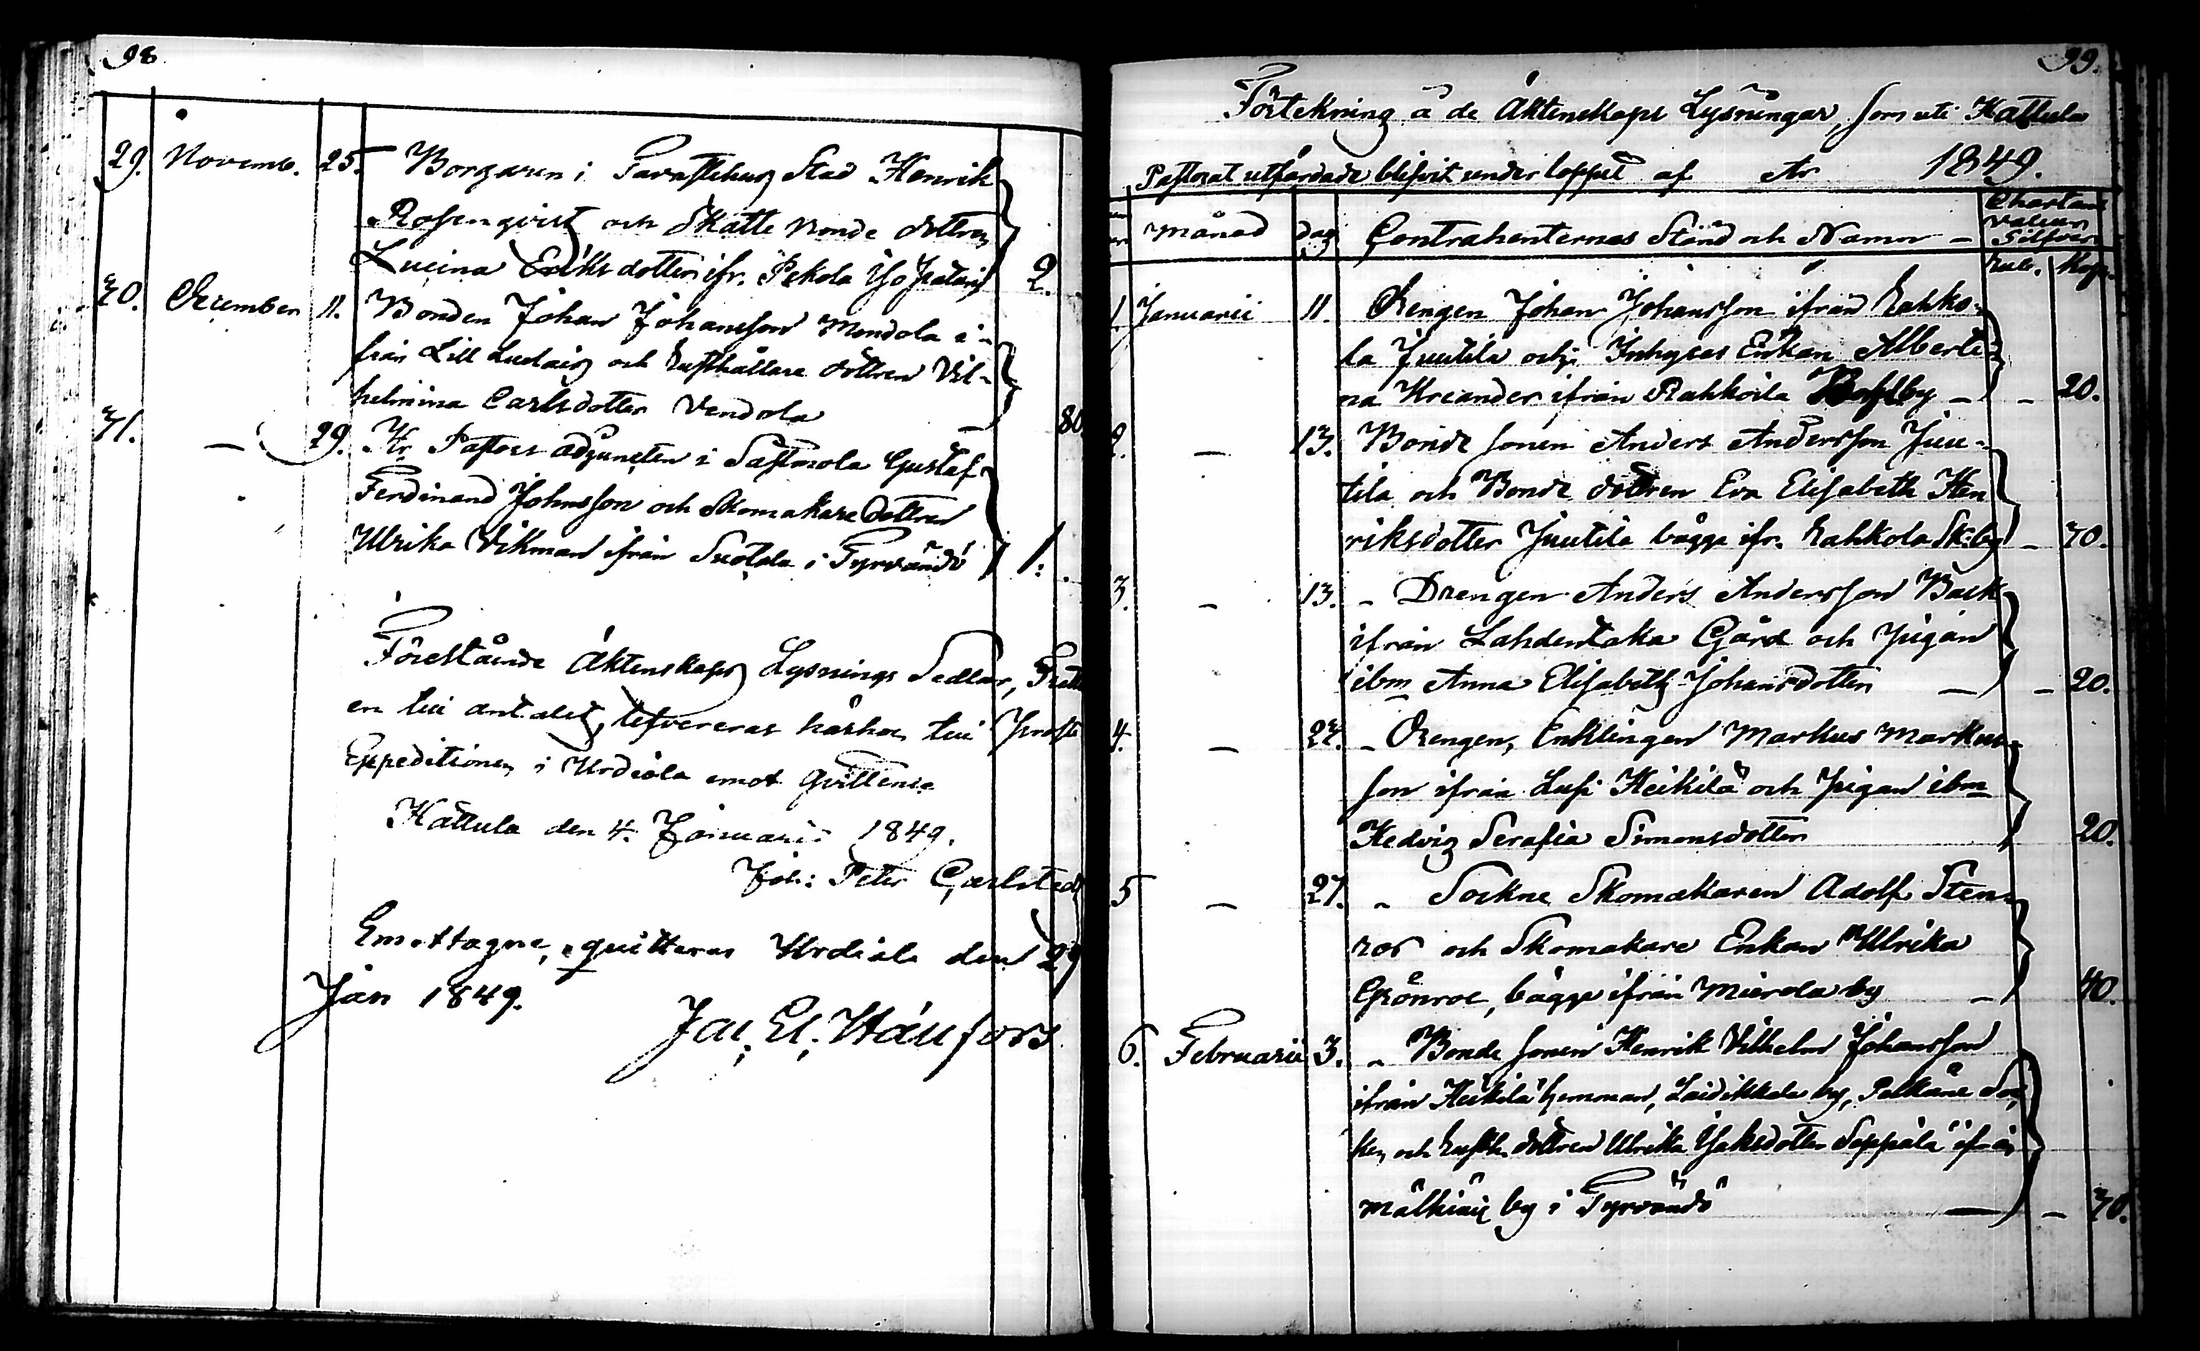 98
29. Novemb. 25. Borgaren i Tavastehus Stad Henrik
Rosenqvist och Skatte Bonde dottren
Lucina Eriksdotter ifr. Pekola 2.
30. December 11. Bonden Johan Johansson Mendola i-
från Lill Luolais och Rusthållare dottren Vil-
helmina Carlsdotter Vendola — 80
31. — 29. Hr Pastors adjuncten i Sastmola Gustaf
Ferdinand Johnsson och Skomakare dottren
Ulrika Vikman ifrån Suotala i Tyrvändö 1:
Förestående Äktenskaps Lysnings Sedlar,
en till antalet, lefvereras härhos till
Expeditionen i Urdiala emot qvittence
Hattula den 4. Januarii 1849.
Joh: Peter Carlsted
Emottagne, quitteras Urdiala den 29
Jan 1849.
99.
Förtekning å de Äktenskaps Lysningar, som uti Hattula
Pastorat utfärdade blifvit under loppet af År 1849.
Månad Dag Contrahenternas Stånd och Namn — Charta
Valeur
Silfver
Rub. Kop.
1. Januarii 11. Drengen Johan Johansson ifrån Rahko-
la Juutila och Inhyses Enkan Alberti-
na Kreander ifrån Rahkoila by — – 20.
2. — 13. Bonde sonen Anders Andersson Juu-
tila och Bonde dottren Eva Elisabeth Hen
riksdotter Juutila bägge ifr. Rahkola Sk:by – 30.
3. — 13. – Drengen Anders Andersson Back
ifrån Lahdentaka Gård och Pigan
ibm Anna Elisabeth Johansdotter — – 20.
4. — 27. – Drengen, Enklingen Markus Markus-
son ifrån Lusi Heikilä och Pigan ibm
Hedvig Serafia Simonsdotter 20.
5 — 27. – Sockne Skomakaren Adolf Sten-
ros och Skomakare Enkan Ulrika
Grönroos, bägge ifrån Mierola by — 40.
6. Februarii 3. – Bonde sonen Henrik Vilhelm Johansson
ifrån Heikilä hemman, Laidikkala by, Pelkäne Soc-
ken och Rusth. dottren Ulrika Isaksdotter Seppälä ifrån
Mälkiäis by i Tyrvändö — – 30.